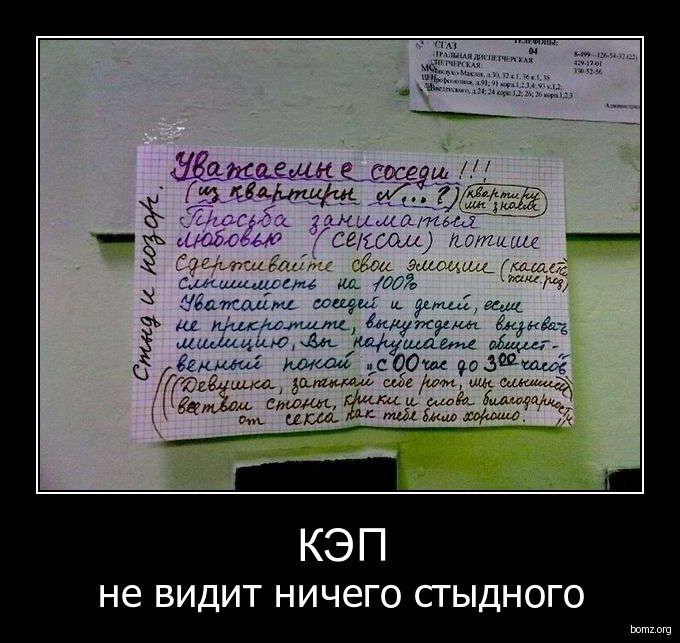 ТЕЛЕФОНЫ:
04
ДИСПЕТЧЕРСКАЯ
429-17-01
330-52-56
Уважаемые соседи!!!
(из квартиры №...?) (квартиру мы знаем)
Просьба заниматься
любовью (сексом) потише
Сдерживайте свои эмоции (касается
слышимость на 100%
Уважайте соседей и детей, если
не прекратите, вынуждены вызывать
милицию, Вы нарушаете общест-
венный покой "с 00 час до 3 00 часов"
(((Девушка, затыкай себе рот, мы слышим
все твои стоны, крики и слова благодарности
от секса как тебе было хорошо.
Стыд и позор.
КЭП
не видит ничего стыдного
bomz.org